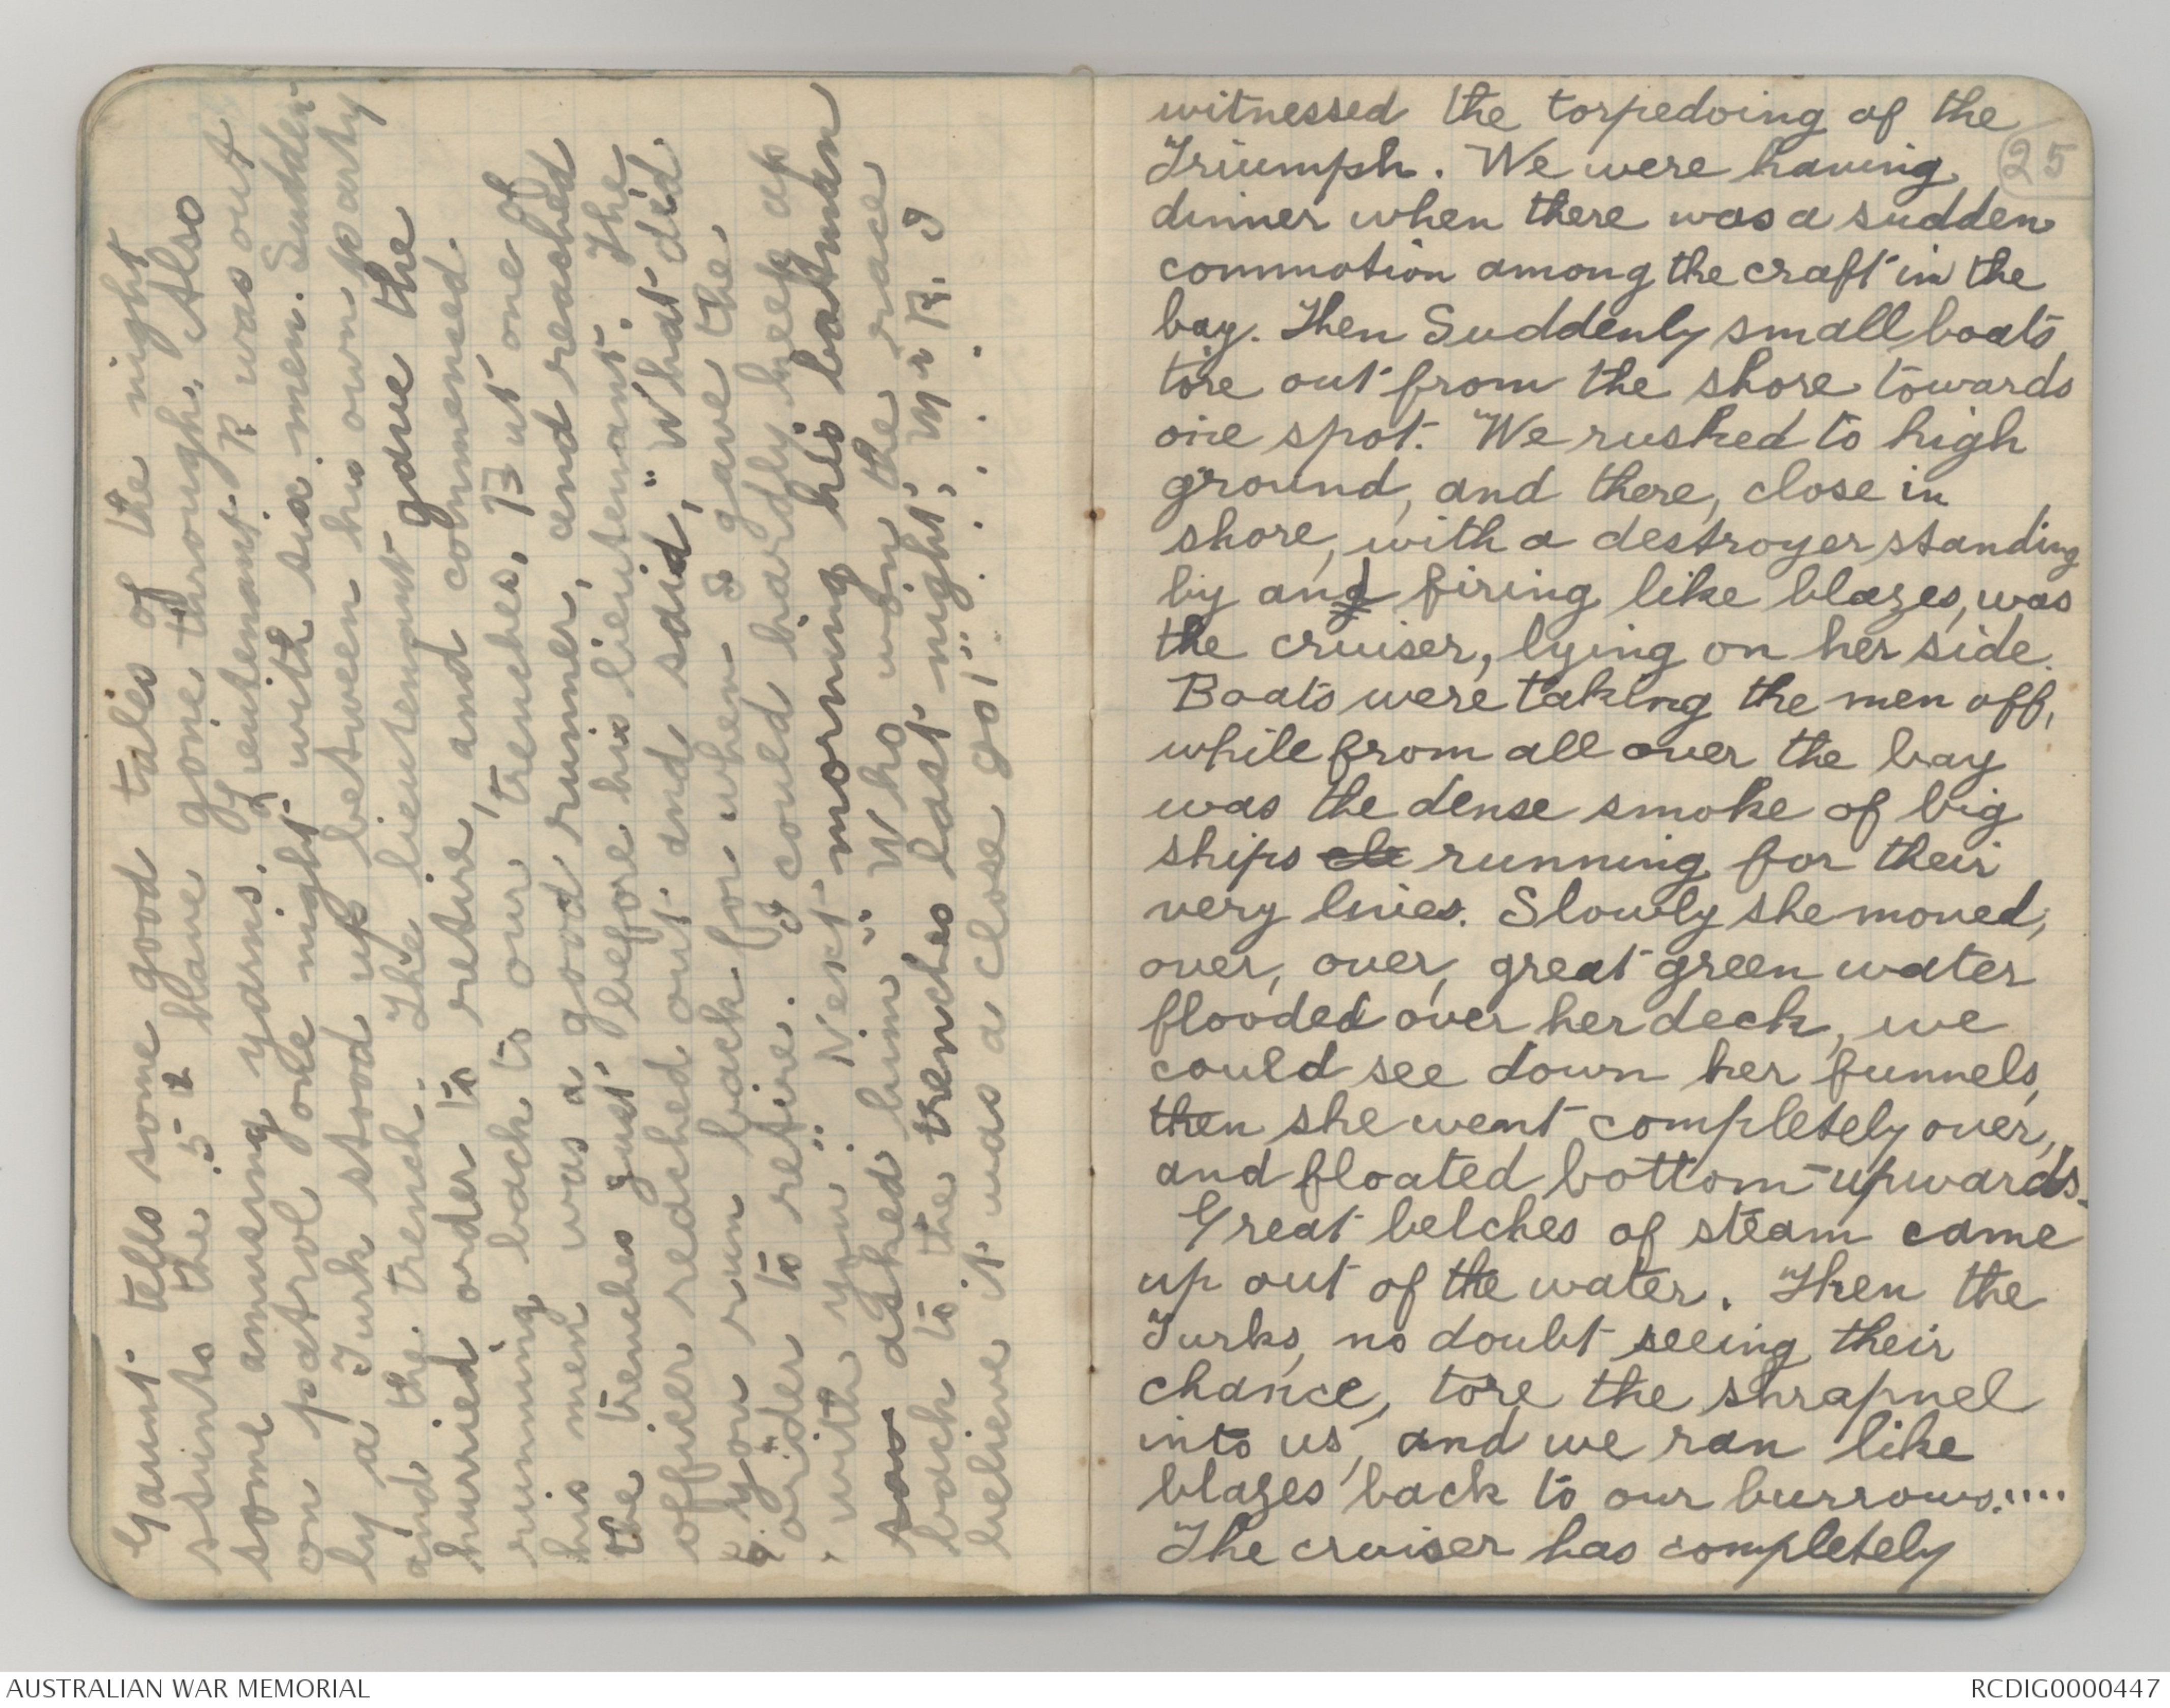 Gaunt tells some good tales of the night
stunts the 5th have gone through. Also
some amusing yarns. Lieutenant R was out
on patrol one night with six men. Sudden-
ly a Turk stood up between his own party
and the trench. The lieutenant gave the
hurried order to retire, and commenced
running back to our trenches, But one of
his men was a good runner, and reached
the trenches just before his lieutenant. The
officer reached out and said, "What did
you run back for when I gave the
order to retire. I could hardly keep up
with you." Next morning his batman
asked him "Who won the race
back to the trenches last night, Mr R. I
believe it was a close go!" ......
25
witnessed the torpedoing of the
Triumph. We were having
dinner when there was a sudden
commotion among the craft in the
bay. Then Suddenly small boats
tore out from the shore towards
one spot. We rushed to high
ground, and there, close in
shore, with a destroyer standing
by and firing like blazes, was
the cruiser, lying on her side.
Boats were taking the men off,
while from all over the bay
was the dense smoke of big
ships running for their
very lives. Slowly she moved,
over, over, great green water
flooded over her deck, we
could see down her funnels,
then she went completely over,
and floated bottom-upwards.
Great belches of steam came
up out of the water. Then the
Turks, no doubt seeing their
chance, tore the shrapnel
into us, and we ran like
blazes back to our burrows.....
The cruiser has completely
AUSTRALIAN WAR MEMORIAL
RCDIG0000447